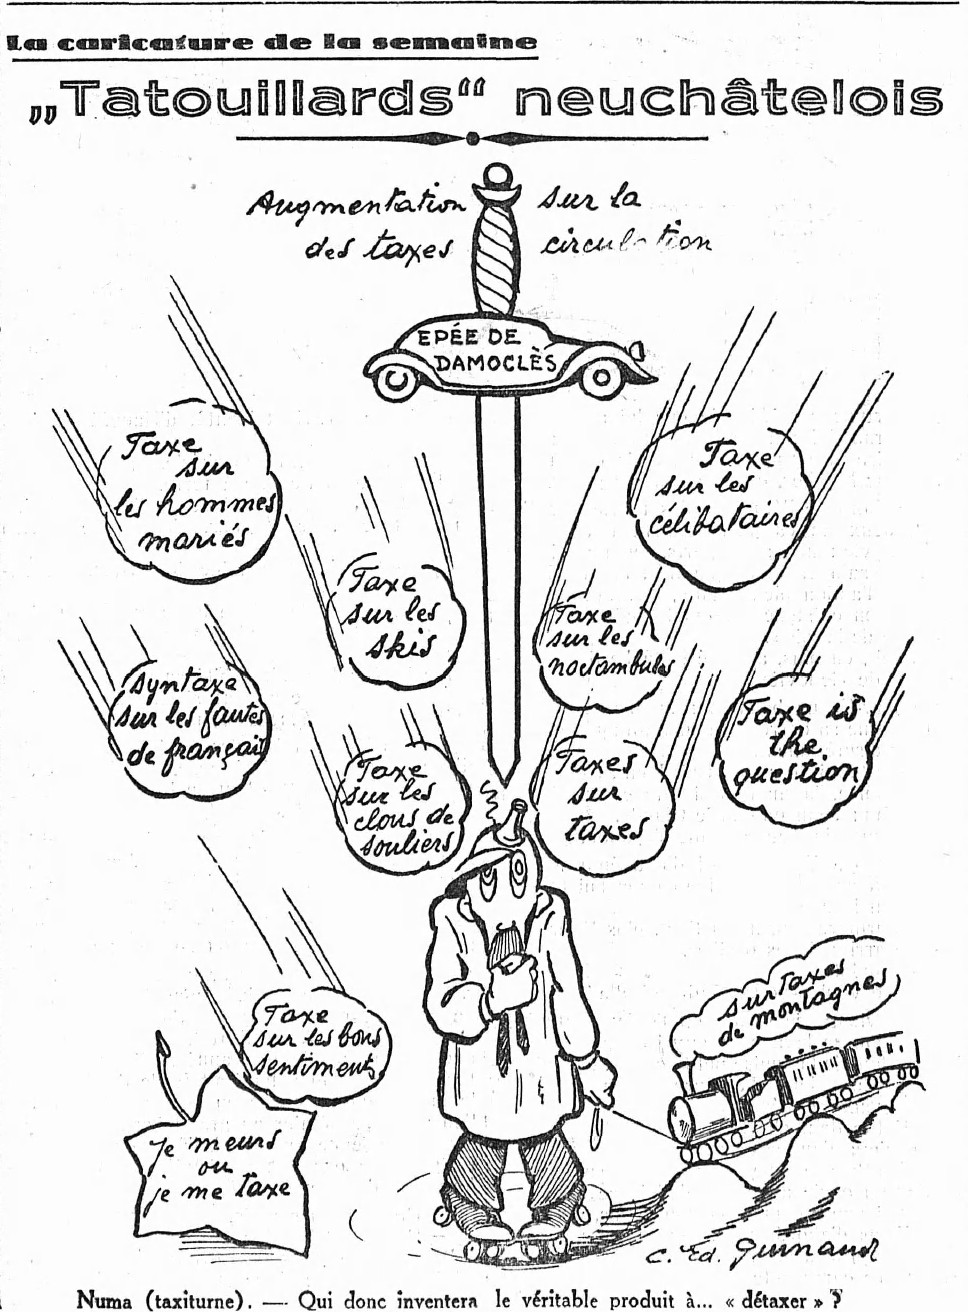 La caricature de la semaine
„Tatouillards“ neuchâtelois
Augmentation sur la
des taxes circulation
EPÉE DE
DAMOCLÈS
Taxe
sur
les hommes
mariés
Taxe
sur les
célibataires
Taxe
sur les
skis
Taxe
sur les
noctambules
syntaxe
sur les fautes
de français
Taxe is
the
question
Taxe
sur les
clous de
souliers
Taxes
sur
taxes
Taxe
sur les bons
sentiments
surtaxes
de montagnes
Je meurs
ou
je me taxe
C. Ed. Guinand
Numa (taxiturne). — Qui donc inventera le véritable produit à... « détaxer » ?